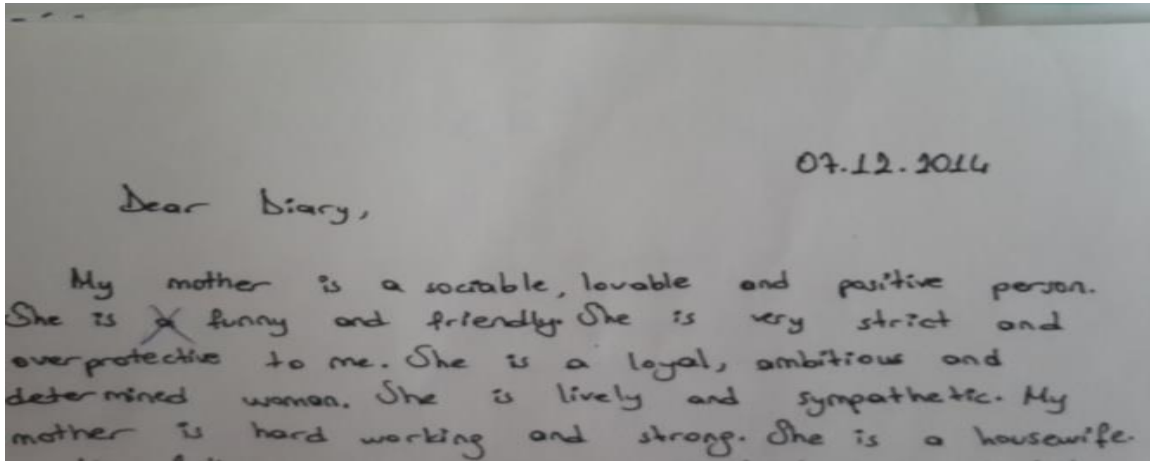 07.12.2014
Dear Diary,
My mother is a sociable, lovable and positive person.
She is funny and friendly. She is very strict and
overprotective to me. She is a loyal, ambitious and
determined woman. She is lively and sympathetic. My
mother is hard working and strong. She is a housewife.